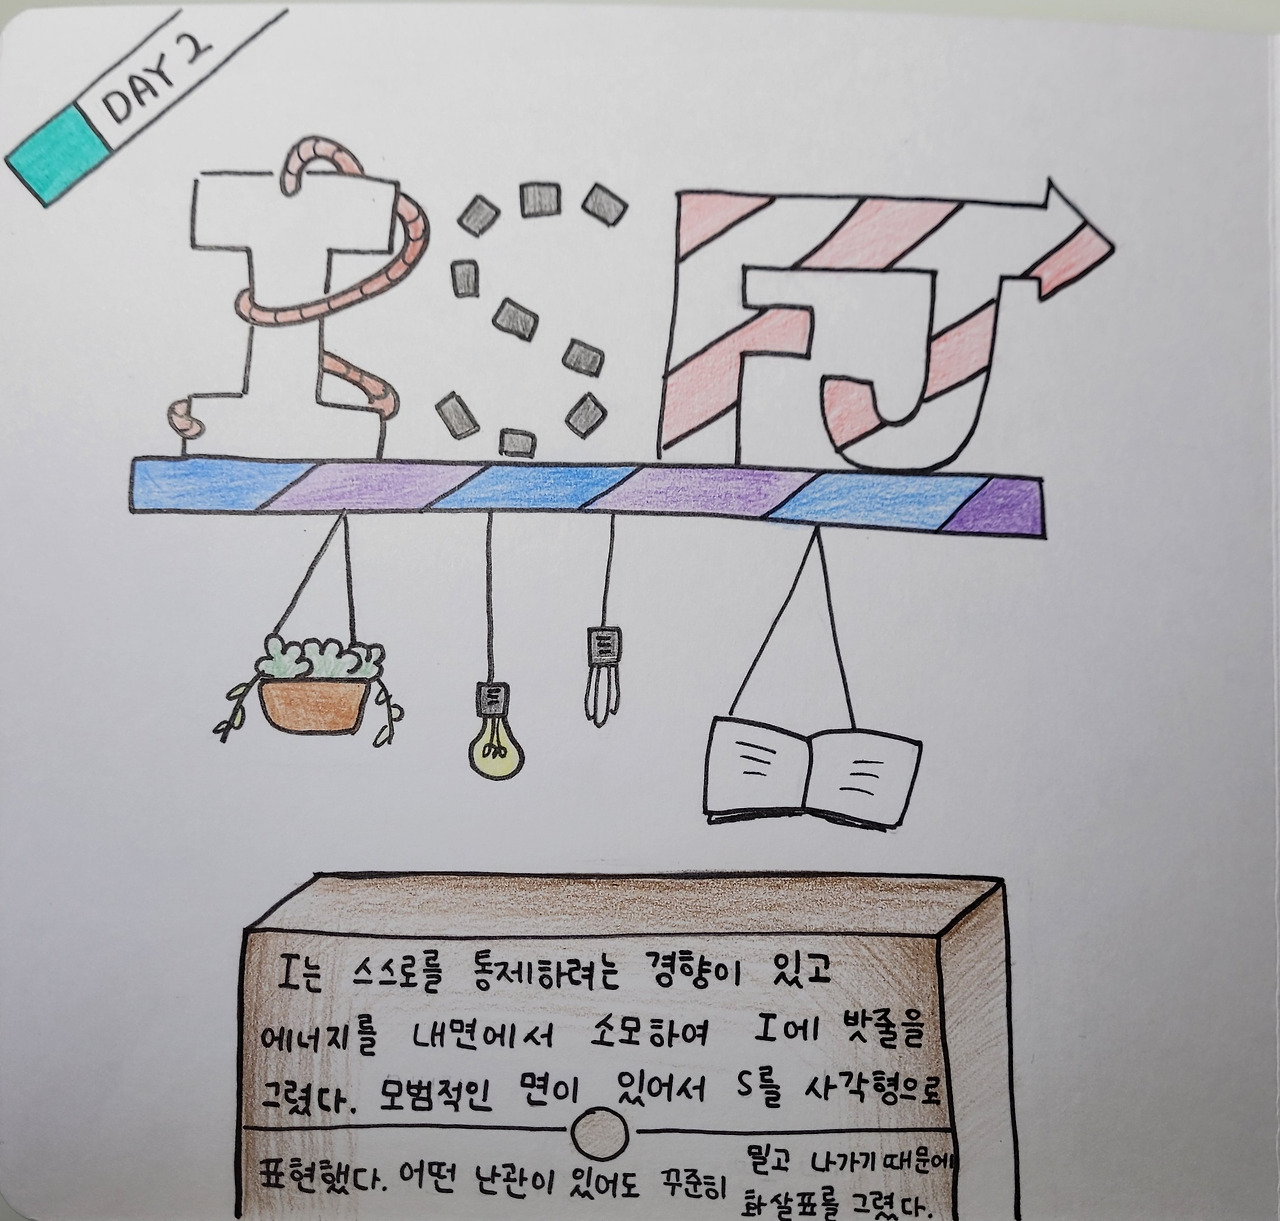 DAY 2
ISFJ
I는 스스로를 통제하려는 경향이 있고
에너지를 내면에서 소모하여 I에 밧줄을
그렸다. 모범적인 면이 있어서 S를 사각형으로
표현했다. 어떤 난관이 있어도 꾸준히 밀고 나가기 때문에
화살표를 그렸다.